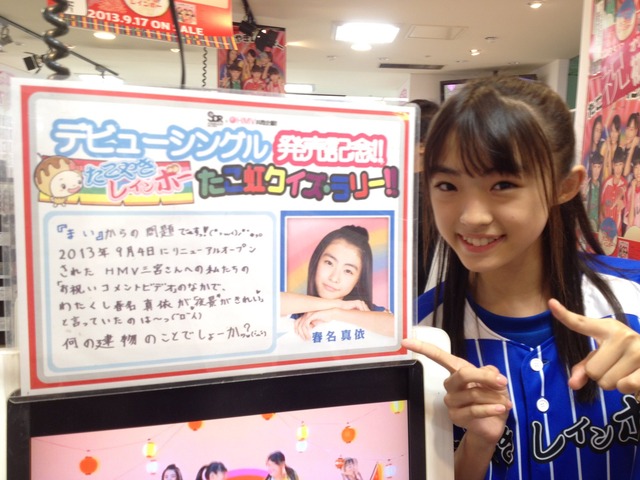 2013.9.17 ON SALE
SDR
HMV
デビューシングル 発売記念!!
たこやきレインボー
たこ虹クイズ・ラリー!!
『まい』からの問題です!!
2013年9月4日にリニューアルオープン
された HMV三宮さんへの私たちの
お祝いコメントビデオのなかで、
わたくし春名真依が“夜景がきれい”
と言っていたのは〜っ(°ロ°)
何の建物のことでしょーか?
春名真依
レインボ